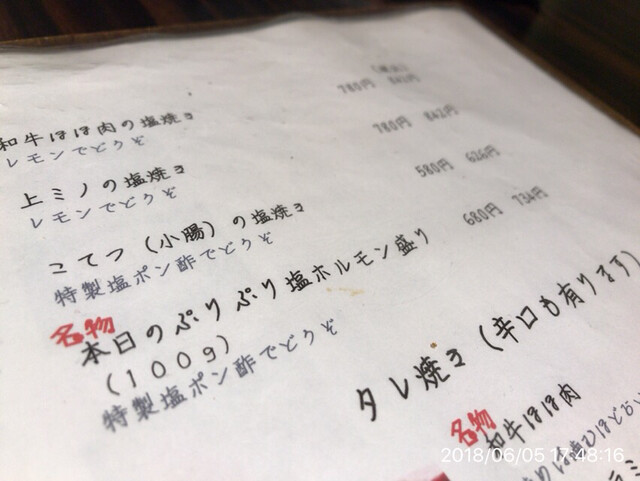 (税込)
和牛ほほ肉の塩焼き 780円 842円
レモンでどうぞ
上ミノの塩焼き 780円 842円
レモンでどうぞ
こてつ(小腸)の塩焼き 580円 626円
特製塩ポン酢でどうぞ
名物
本日のぷりぷり塩ホルモン盛り 680円 734円
(100g)
特製塩ポン酢でどうぞ
タレ焼き(辛口も有ります)
名物
和牛ほほ肉
2018/06/05 17:48:16